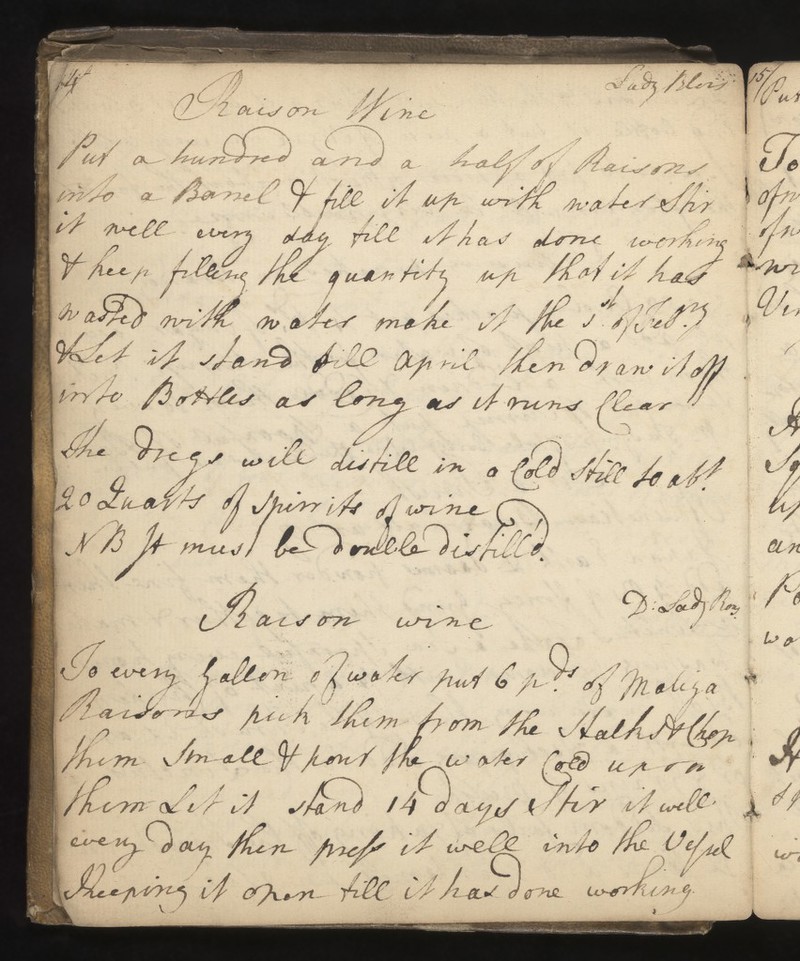 14
Lady Blois
Raison Wine
Put a hundred and a half of Raisons
into a Barrel & fill it up with water Stir
it well every day till it has done working
& keep filling the quantity up that it has
wasted with water make it the 1st of Febry
& Let it stand till April then draw it off
into Bottles as long as it runs Clear
The Dregs will distill in a Cold Still to abt
20 Quarts of Spirrits of wine
NB It must be double distill'd.
Raison wine
D: Lady
To every Gallon of water put 6 pds of Maliga
Raisons pick them from the Stalks & Chop
them Small & pour the water Cold upon
them Let it stand 14 days Stir it well
every day then press it well into the Vessel
Keeping it open till it has done working
15
Put
To